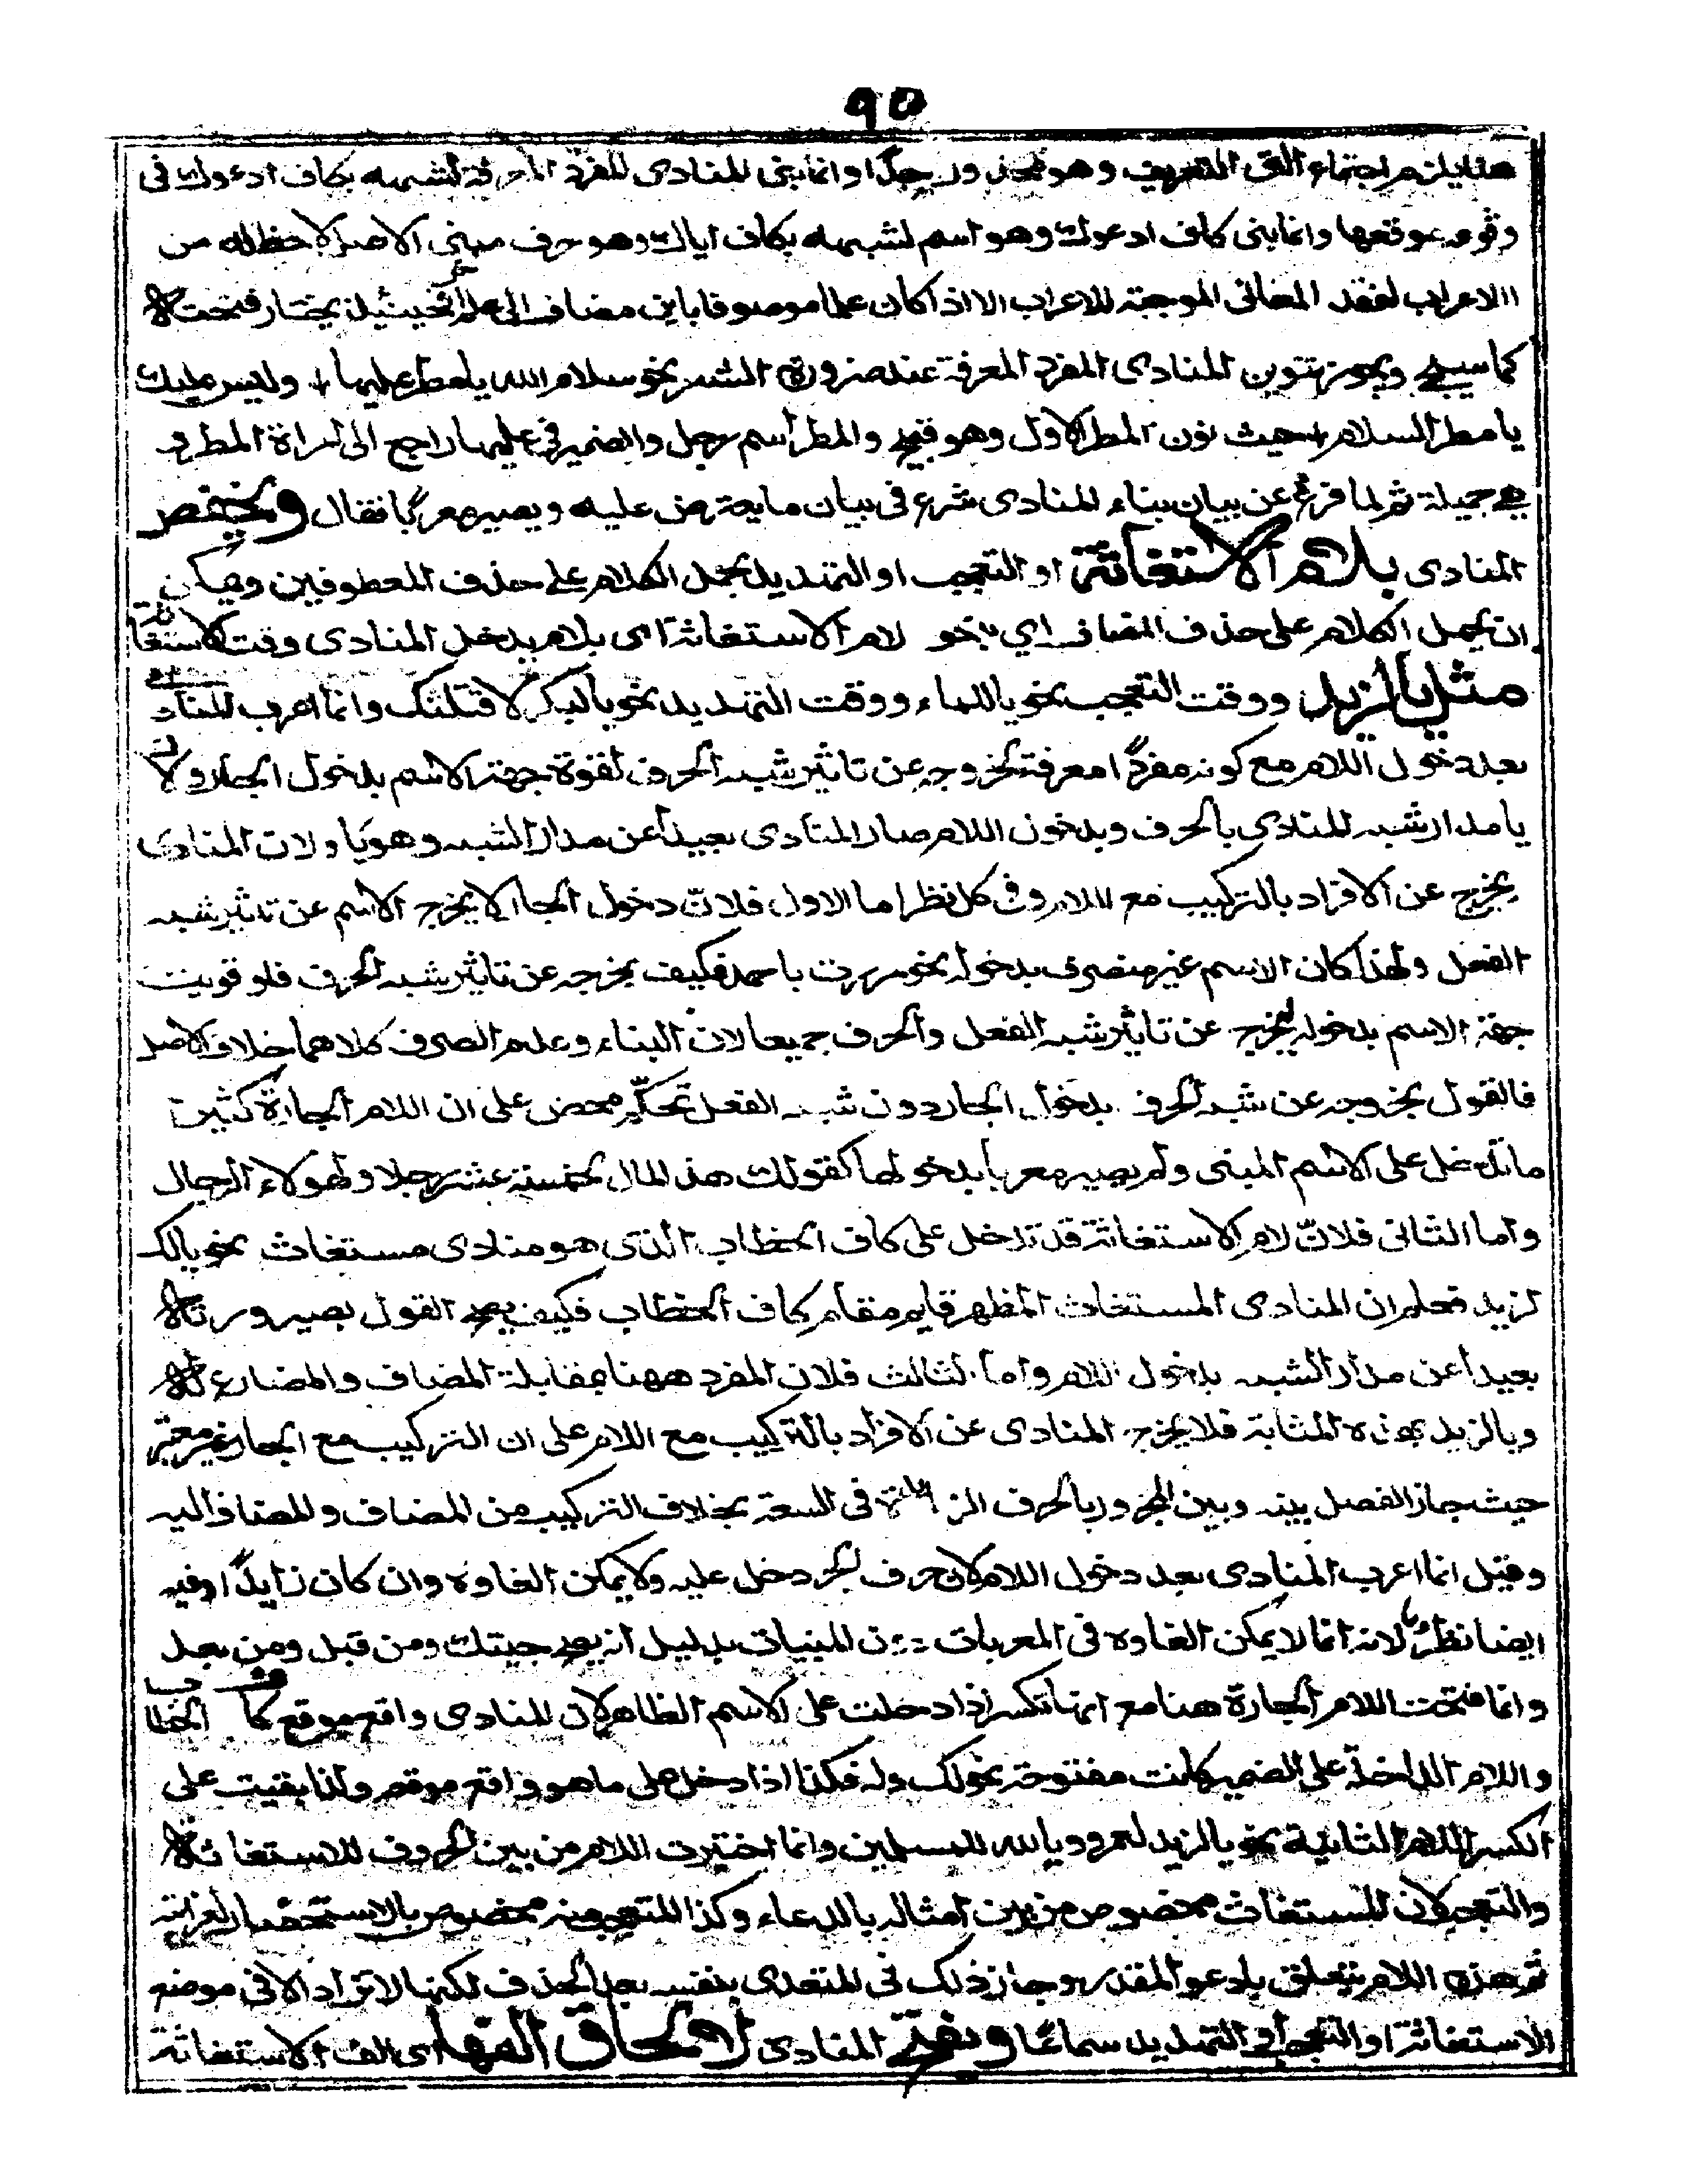 ٩٥
هنا يلزم اجتماع التى التعريف وهو محذور جدًا وانما بنى المنادى المفرد المعرفة لشبهه بكاف ادعوك فى
وقوعه موقعها وانما بنى كاف ادعوك وهو اسم لشبهه بكاف اياك وهو حرف مبنى الاصل لا حظ له من
الاعراب لفقد المعانى الموجبة للاعراب الا اذا كان علما موصوفا بابن مضاف الى علم اخر فحينئذ يختار فتحته
كما سيجئ ويجوز تنوين المنادى المفرد المعرفة عند ضرورة الشعر نحو سلام الله يا مطر عليها وليس عليك
يا مطر السلام حيث نون المطر الاول وهو قبيح والمطر اسم رجل والضمير فى عليها راجع الى امراة المطر و
هى جميلة ثم لما فرغ عن بيان بناء المنادى شرع فى بيان ما يعترض عليه ويصير معربًا فقال ويخفض
المنادى بلام الاستغاثة او التعجب او التهديد يحمل الكلام على حذف المعطوفين ويمكن
ان يحمل الكلام على حذف المضاف اي بنحو لام الاستغاثة اى بلام يدخل المنادى وقت الاستغاثة
مثل يا لزيد ووقت التعجب نحو يا للماء ووقت التهديد نحو يا لبكر لاقتلنك وانما اعرب المنادى
بعد دخول اللام مع كونه مفردًا معرفة لخروجه عن تاثير شبه الحرف لقوة جهة الاسم بدخول الجار ولان
يا مدار شبه المنادى بالحرف وبدخول اللام صار المنادى بعيداً عن مدار الشبه وهو يا ولان المنادى
يخرج عن الافراد بالتركيب مع اللام وفى كل نظر اما الاول فلانّ دخول الجار لا يخرج الاسم عن تاثير شبه
الفعل ولهذا كان الاسم غير منصرف بدخوله نحو مررت باحمد فكيف يخرجه عن تاثير شبه الحرف فلو قويت
جهة الاسم بدخوله ليخرج عن تاثير شبه الفعل والحرف جميعا لان البناء وعدم الصرف كلاهما خلاف الاصل
فالقول بخروجه عن شبه الحرف بدخول الجار دون شبه الفعل تحكّم محض على ان اللام الجارة كثيرا
ما تدخل على الاسم المبنى ولم يصير معربا بدخولها كقولك هذا المال لخمسة عشر رجلا ولهولاء الرجال
واما الثانى فلانّ لام الاستغاثة قد تدخل على كاف الخطاب الذى هو منادى مستغاث نحو يا لك
لزيد فعلم ان المنادى المستغاث المظهر قايم مقام كاف الخطاب فكيف يصح القول بصيرورته
بعيداً عن مدار الشبه بدخول اللام واما الثالث فلان المفرد ههنا بمقابلة المضاف والمضارع له
ويا لزيد بهذه المثابة فلا يخرج المنادى عن الافراد بالتركيب مع اللام على ان التركيب مع الجار غير معتبر
حيث جاز الفصل بينه وبين المجرور بالحرف الزائدة فى السعة بخلاف التركيب من المضاف والمضاف اليه
وقيل انما اعرب المنادى بعد دخول اللام لان حرف الجر دخل عليه ولا يمكن الغاوه وان كان زايدًا وفيه
ايضا نظر لانه انما لا يمكن الغاوه فى المعربات دون المبنيات بدليل انه يصح جيتك ومن قبل ومن بعد
وانما فتحت اللام الجارة هنا مع انها تكسر اذا دخلت على الاسم الظاهر لان المنادى واقع موقع كاف الخطاب
واللام الداخلة على الضمير كانت مفتوحة نحو لك وله فكذا اذا دخل على ما هو واقع موقعه ولذا بقيت على
الكسر اللام الثانية نحو يا لزيد لعمرو ويا لله للمسلمين وانما اختيرت اللام من بين الحروف للاستغاثة
والتعجب لان المستغاث مخصوص من بين امثاله بالدعاء وكذا المتعجب منه مخصوص بالاستحضار لغرابته
ثم هذه اللام يتعلق بادعو المقدر وجاز ذلك فى المتعدى بنفسه بعد الحذف لكنها لا تزاد الا فى موضع
الاستغاثة او التعجب او التهديد سماعًا ويفتح المنادى لالحاق الفها اى الف الاستغاثة